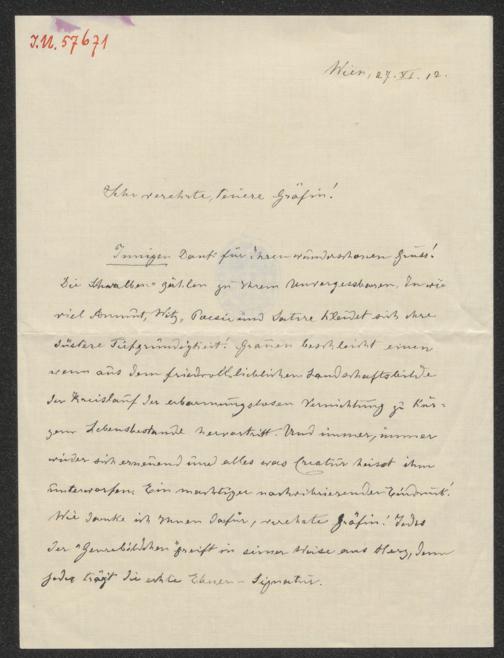 J.N. 57671
Wien, 27. XI. 12.
Sehr verehrte, teuere Gräfin!
Innigen Dank für Ihren wunderschönen Gruss!
Die Schwalben zählen zu Ihrem Unvergessbaren. In wie
viel Anmut, Witz, Poesie und Satire kleidet sich ihre
düstere Tiefgründigkeit! Grauen beschleicht einen
wenn aus dem friedvoll lieblichen Landschaftsbilde
der Kreislauf der erbarmungslosen Vernichtung zu kur-
zem Lebensbestande hervortritt. Und immer, immer
wieder sich erneuend und alles was Creatur heisst ihm
unterworfen. Ein mächtiger nachvibrierender Eindruck!
Wie danke ich Ihnen dafür, verehrte Gräfin! Jedes
der "Genrebildchen" greift in seiner Weise ans Herz, denn
jedes trägt die echte Ebner-Signatur.